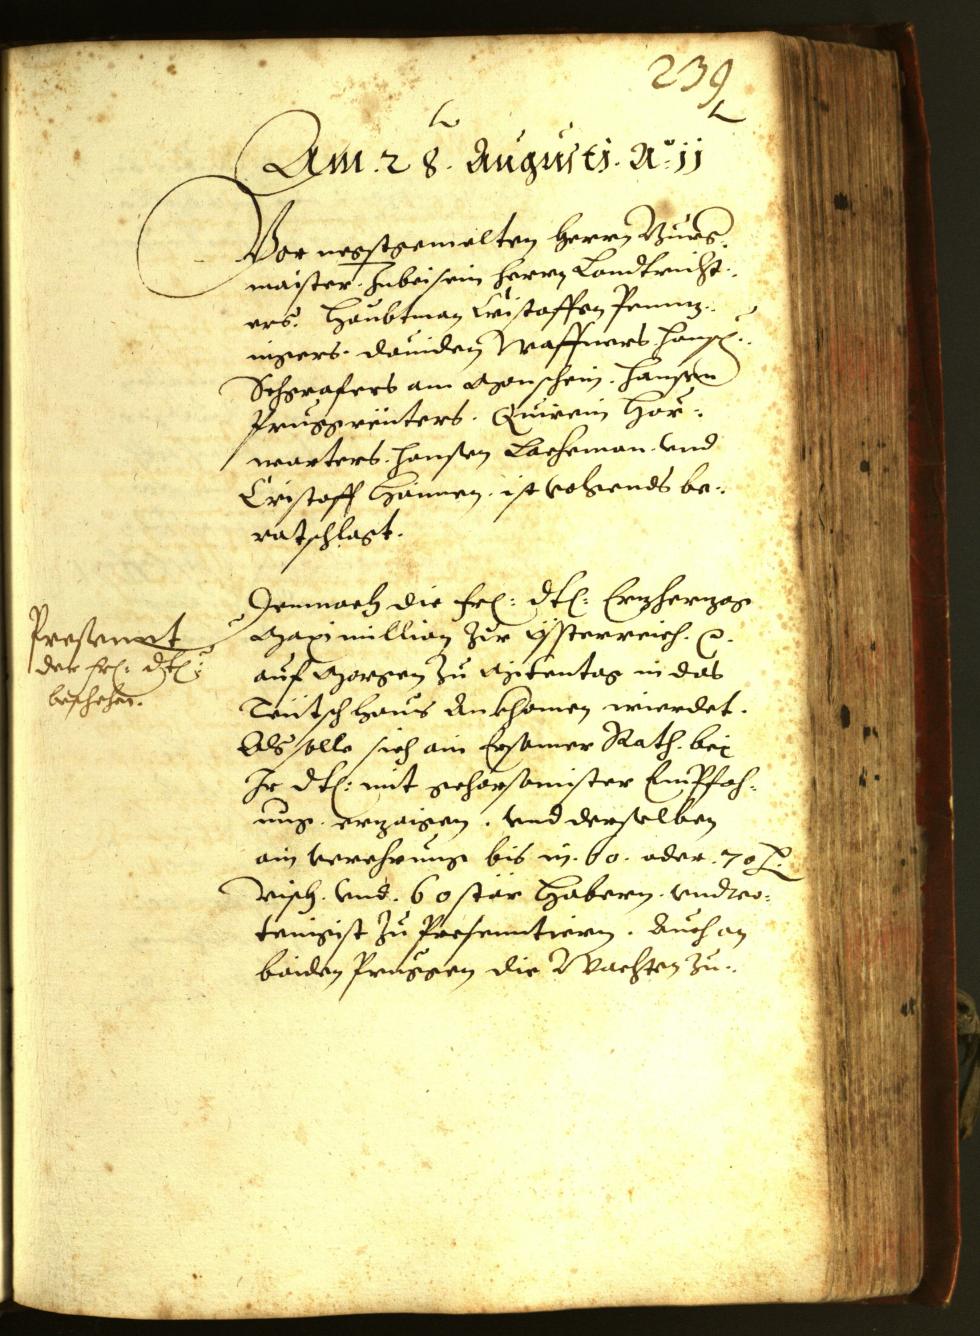 239
Am. 28. Augusti. Aº. 11
Vor negstgemelten herrn Burg„
maister. Inbeisein herrn Landtricht„
ers. Haubtman Cristoffen Penniz„
ingers. dauiden Waffners. Hanns„
Schgrafers am Monschein. Hansen
Pruggreüters. Quirein Hör„
warters. Hansen Lacheman. vnd
Cristoff Hännen. ist volgends be„
ratschlagt.
Demnach die frl: dtl: Erzherzog
Maximillian zur Össterreich. ꝛc.
auf Morgen zu Mitentag in das
Teütsch Haus Ankhomen wierdet.
Als solle sich ain Ersamer Rath. bei
Ir dtl: mit gehorsamister Empfah„
ung. erzaigen. vnd derselben
ain verehrung bis in. 60. oder. 70 fl.
visch. vnd. 60 stär Habern. vndter„
tenigist zu Presenntiern. Auch an
baiden Pruggen die Wachten zu„
Presennt
der frl: dtl:
beschehen.